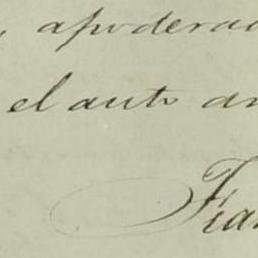 , apoderad
el auto an
Fian